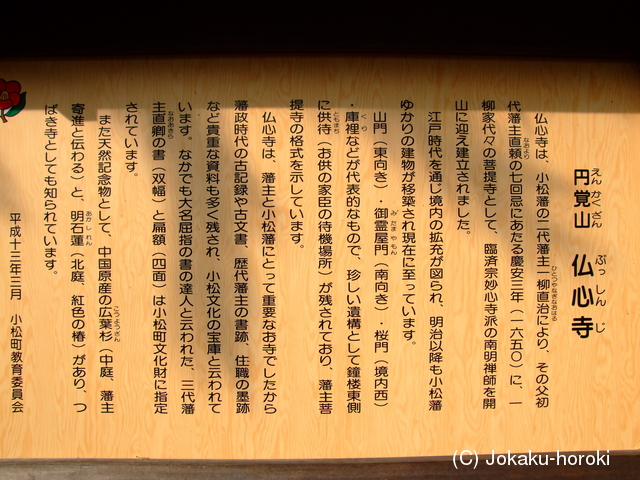 円覚山 仏心寺
えんかくざん ぶっしんじ
仏心寺は、小松藩の二代藩主一柳直治により、その父初
ひとつやなぎなおはる
代藩主直頼の七回忌にあたる慶安三年（一六五〇）に、一
なおより
柳家代々の菩提寺として、臨済宗妙心寺派の南明禅師を開
山に迎え建立されました。
江戸時代を通じ境内の拡充が図られ、明治以降も小松藩
ゆかりの建物が移築され現在に至っています。
山門（東向き）・御霊屋門（南向き）・桜門（境内西）
みたまやもん
・庫裡などが代表的なもので、珍しい遺構として鐘楼東側
くり
に供待（お供の家臣の待機場所）が残されており、藩主菩
ともまち
提寺の格式を示しています。
仏心寺は、藩主と小松藩にとって重要なお寺でしたから
藩政時代の寺記録や古文書、歴代藩主の書跡、住職の墨跡
など貴重な資料も多く残され、小松文化の宝庫と云われて
います。なかでも大名屈指の書の達人と云われた、三代藩
主直卿の書（双幅）と扁額（四面）は小松町文化財に指定
なおあきら
されています。
また天然記念物として、中国原産の広葉杉（中庭、藩主
こうようざん
寄進と伝わる）と、明石蓮（北庭、紅色の椿）があり、つ
あかしれん
ばき寺としても知られています。
平成十三年三月 小松町教育委員会
(C) Jokaku-horoki